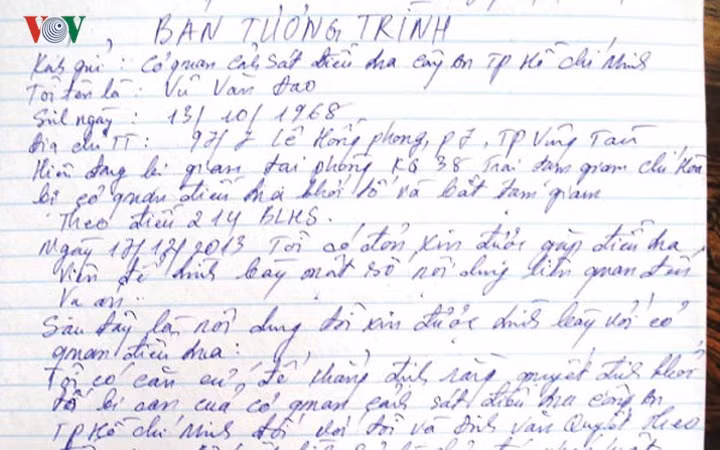 VOV
BẢN TƯỜNG TRÌNH
Kính gửi : Cơ quan cảnh sát điều tra công an TP Hồ Chí Minh
Tôi tên là : Vũ Văn Đao
Sinh ngày : 13/10/1968
Địa chỉ TT : 97/7 Lê Hồng phong, p7, TP Vũng Tàu
Hiện đang bị giam tại phòng KG 38 Trại tạm giam chí Hòa
bị cơ quan điều tra khởi tố và bắt tạm giam
Theo điều 214 BLHS.
Ngày 17/12/2013 Tôi có đơn xin được gặp điều tra
viên để trình bày một số nội dung liên quan đến
Vụ án.
Sau đây là nội dung tôi xin được trình bày với cơ
quan điều tra :
Tôi có căn cứ để khẳng định rằng quyết định khởi
tố bị can của cơ quan cảnh sát điều tra công an
TP Hồ Chí Minh đối với tôi và Đinh Văn Quyết Theo